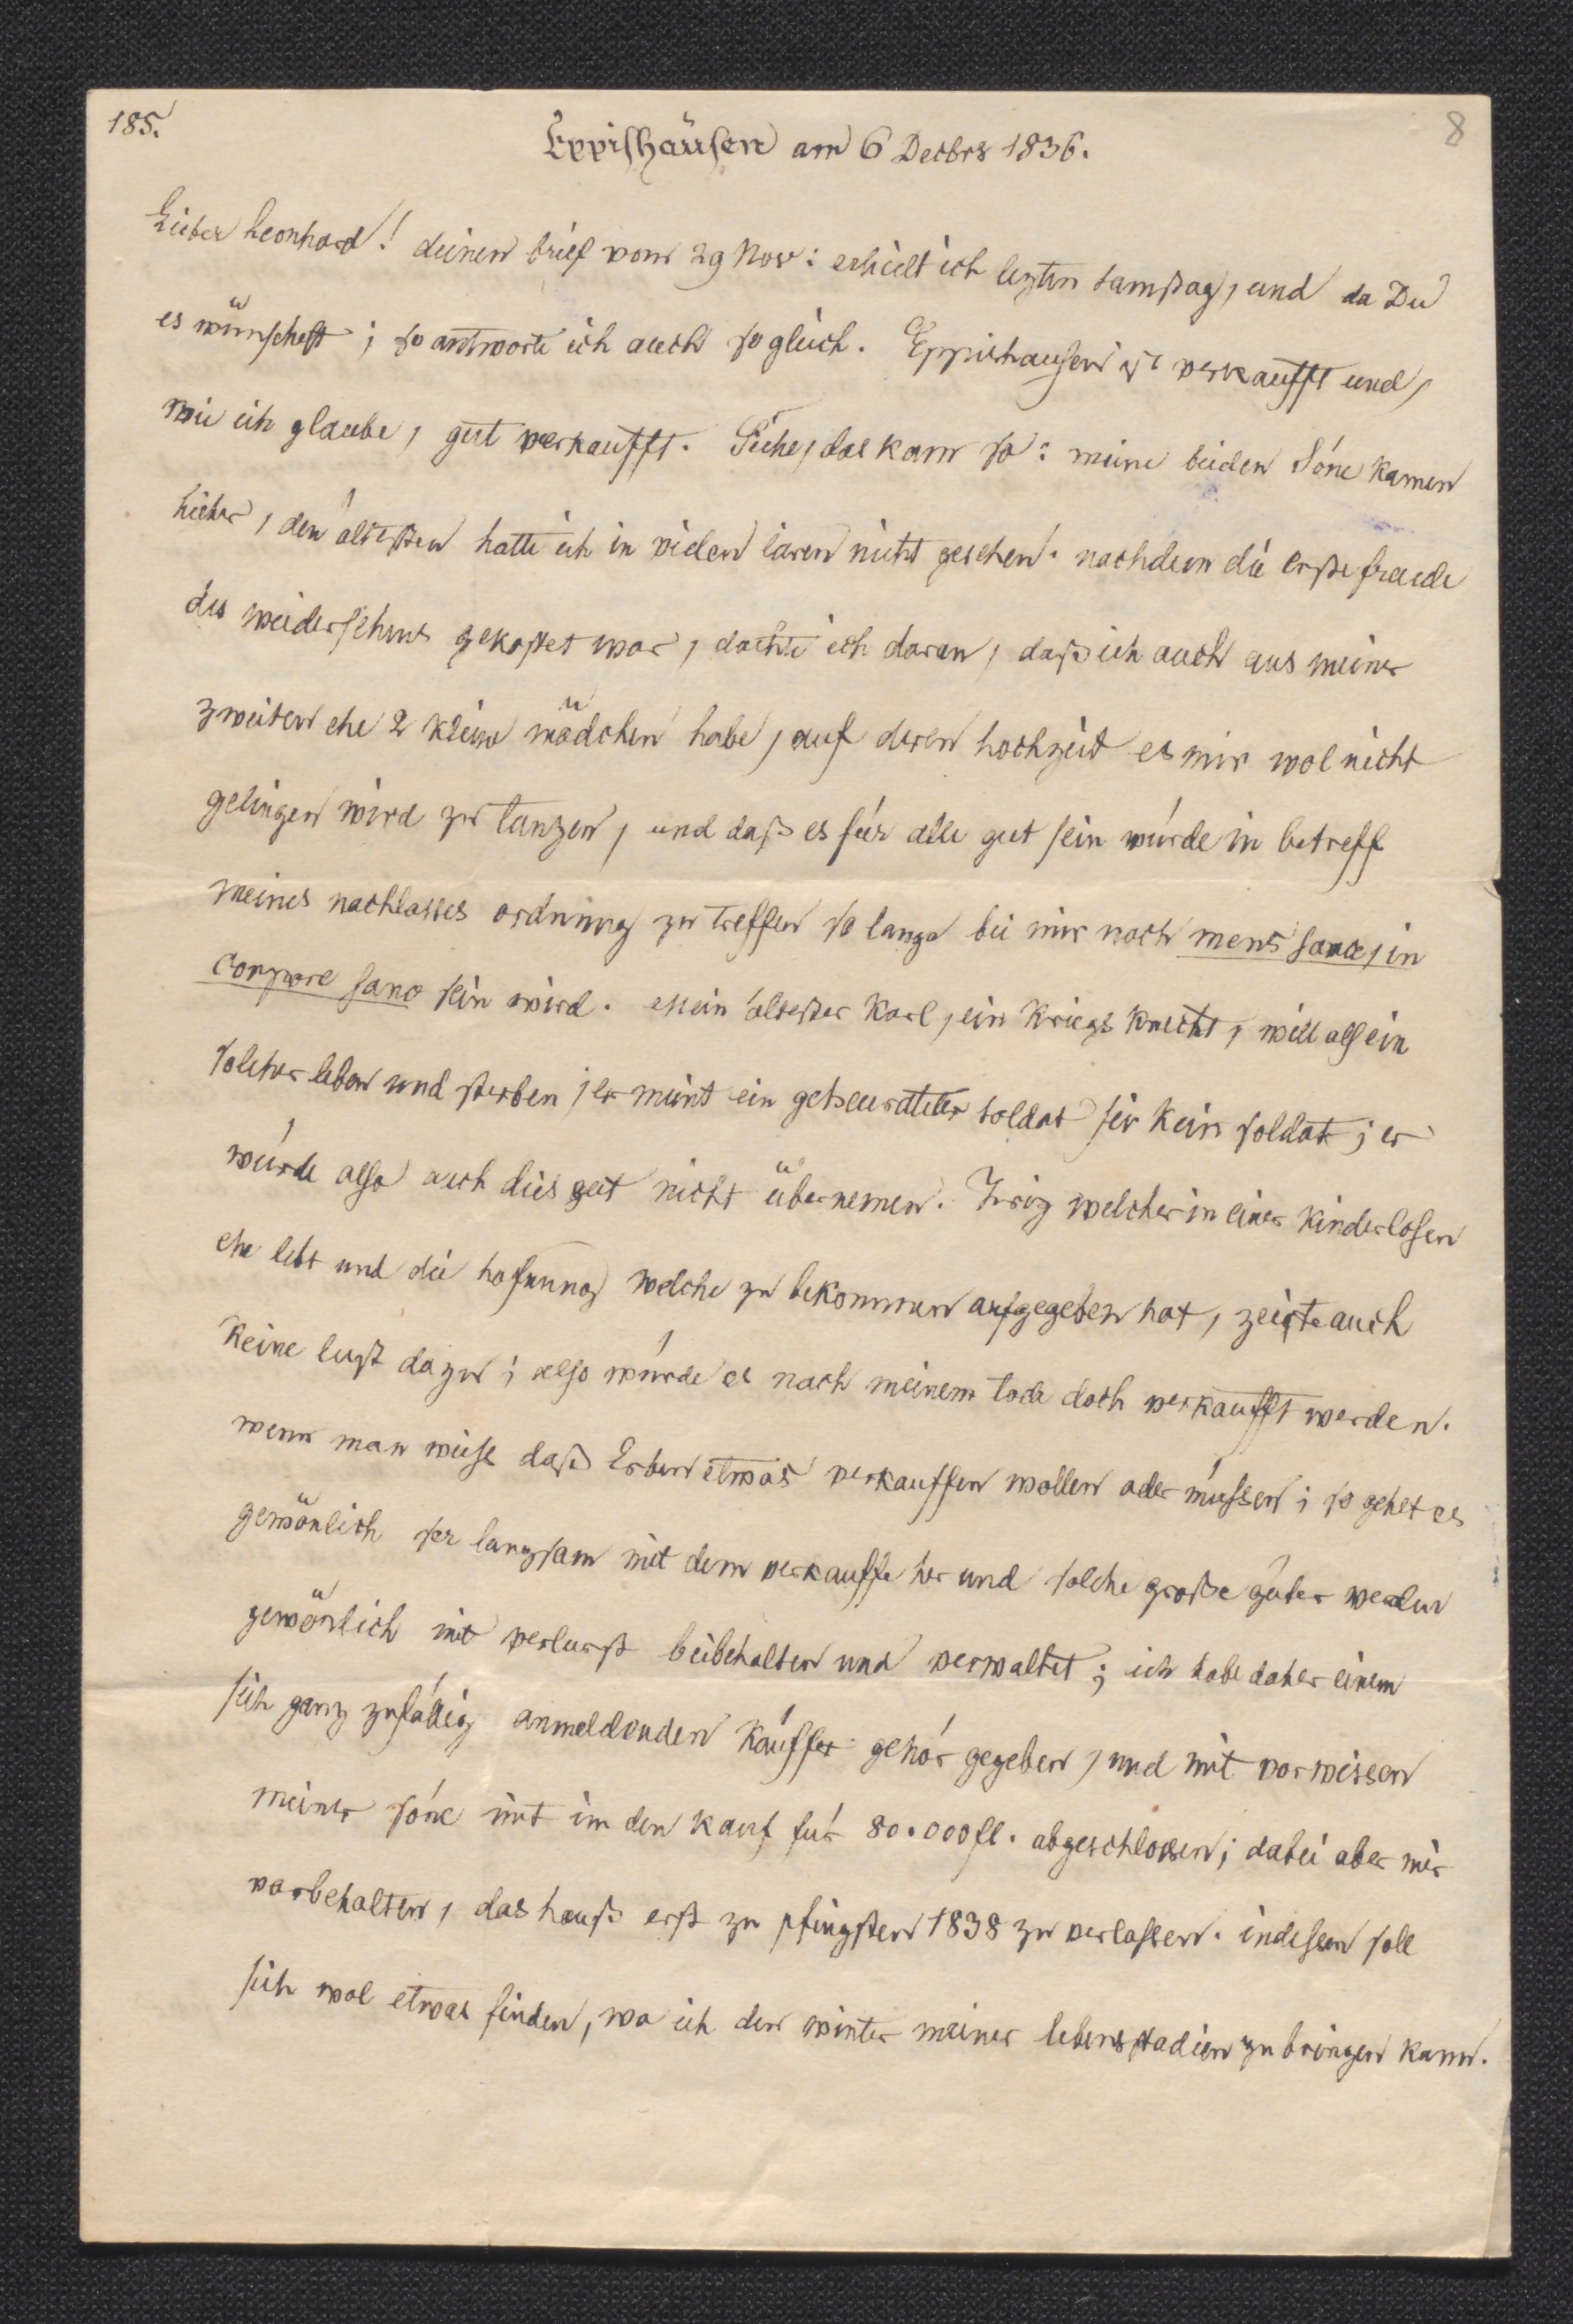 185.
8
Eppishäusen am 6 Decbrs 1836.
Lieber Leonhard! deinen brief vom 29 Nov: erhielt ich lezten samstag, und da Du
es wünschest; so antworte ich auch sogleich. Eppishausen ist verkaufft und,
wie ich glaube, gut verkaufft. Siehe, das kam so: meine beiden Söne kamen
hieher, den ältesten hatte ich in vielen iaren nicht gesehen. nachdem die erste freude
des wiedersehens gekostet war, dachte ich daran, daß ich auch aus meiner
zweiten ehe 2 kleine mädchen habe, auf deren hochzeit es mir wol nicht
gelingen wird zu tanzen, und daß es für alle gut sein würde in betreff
meines nachlasses ordnung zu treffen so lange bei mir noch mens sana, in
corpore sano sein wird. Mein ältester Karl, ein kriegs knecht, will als ein
solcher leben und sterben; er meint ein geheurateter soldat sei kein soldat; er
würde also auch dies gut nicht übernemen. Irig welcher in einer kinderlosen
ehe lebt und die hofnung welche zu bekommen aufgegeben hat, zeigte auch
keine lust dazu; also würde es nach meinem tode doch verkaufft werden.
wenn man weise daß Erben etwas verkauffen wollen oder müssen; so gehet es
gewönlich ser langsam mit dem verkauffe her und solche große güter werden
gewönlich mit verlurst beibehalten und verwaltet; ich habe daher einem
sich ganz zufällig anmeldenden käuffer gehör gegeben, und mit vorwissen
meiner söne mit im den kauf für 80.000 fl. abgeschlossen; dabei aber mir
vorbehalten, das hauß erst zu pfingsten 1838 zu verlassen. indessen soll
sich wol etwas finden, wo ich den winter meiner lebensstadien zu bringen kann.